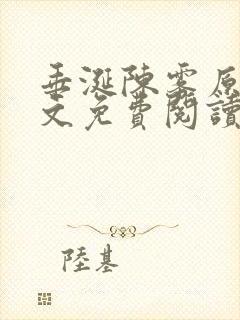 垂涎陳雾原
文免費閱讀
陸基